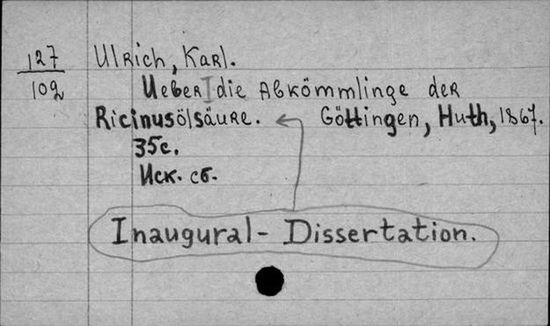 127
102
Ulrich, Karl.
Ueber die Abkömmlinge der
Ricinusölsäure. Göttingen, Huth, 1867.
35c.
Иск. сб.
Inaugural- Dissertation.